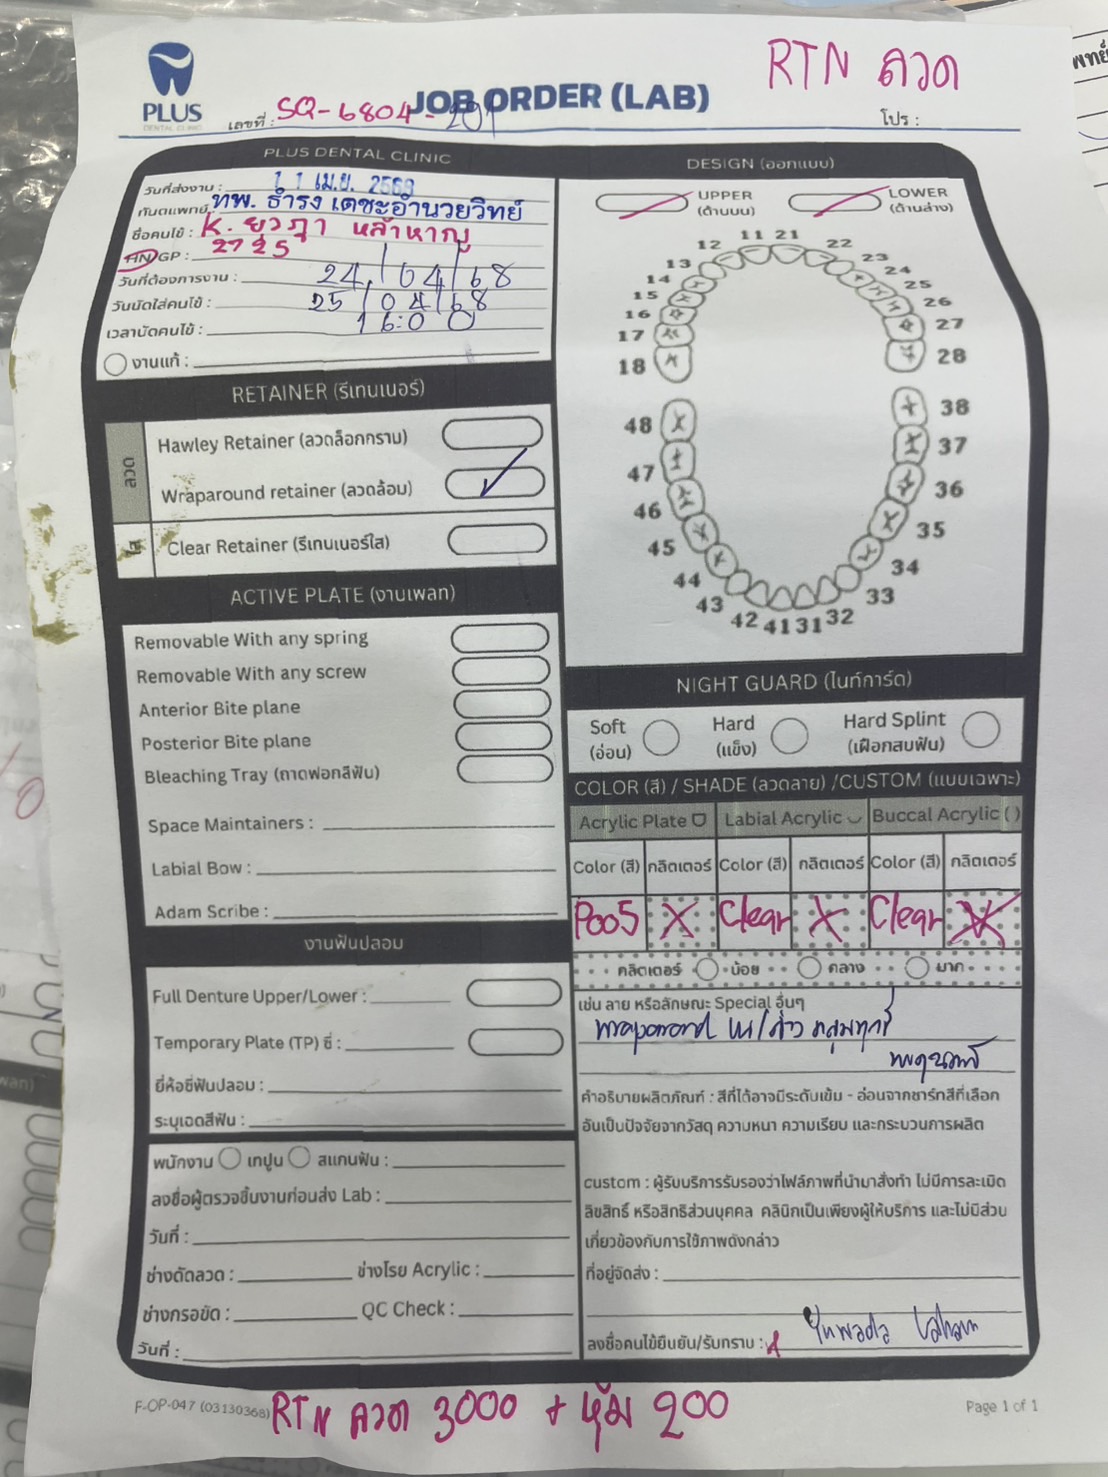 RTN ลวด
PLUS
DENTAL CLINIC
JOB ORDER (LAB)
เลขที่ : SQ-6804-201
โปร :
PLUS DENTAL CLINIC
วันที่ส่งงาน : 11 เม.ย. 2568
ทันตแพทย์ ทพ. ธำรง เดชะอำนวยวิทย์
ชื่อคนไข้ : K. ยุวฎา หล้าหาญ
HN/GP : 2725
วันที่ต้องการงาน : 24/04/68
วันนัดใส่คนไข้ : 25/04/68
เวลานัดคนไข้ : 16:00
งานแก้ :
RETAINER (รีเทนเนอร์)
ลวด
Hawley Retainer (ลวดล็อกกราม)
Wraparound retainer (ลวดล้อม)
ใส
Clear Retainer (รีเทนเนอร์ใส)
ACTIVE PLATE (งานเพลท)
Removable With any spring
Removable With any screw
Anterior Bite plane
Posterior Bite plane
Bleaching Tray (ถาดฟอกสีฟัน)
Space Maintainers :
Labial Bow :
Adam Scribe :
งานฟันปลอม
Full Denture Upper/Lower :
Temporary Plate (TP) ซี่ :
ยี่ห้อซี่ฟันปลอม :
ระบุเฉดสีฟัน :
พนักงาน เทปูน สแกนฟัน :
ลงชื่อผู้ตรวจชิ้นงานก่อนส่ง Lab :
วันที่ :
ช่างดัดลวด : ช่างโรย Acrylic :
ช่างกรอขัด : QC Check :
วันที่ :
DESIGN (ออกแบบ)
UPPER (ด้านบน)
LOWER (ด้านล่าง)
11 21
12 22
13 23
14 24
15 25
16 26
17 27
18 28
48 38
47 37
46 36
45 35
44 34
43 33
42 41 31 32
NIGHT GUARD (ไนท์การ์ด)
Soft (อ่อน)
Hard (แข็ง)
Hard Splint (เฝือกสบฟัน)
COLOR (สี) / SHADE (ลวดลาย) /CUSTOM (แบบเฉพาะ)
Acrylic Plate Labial Acrylic Buccal Acrylic ( )
Color (สี) กลิตเตอร์ Color (สี) กลิตเตอร์ Color (สี) กลิตเตอร์
P005 X Clear X Clear X
กลิตเตอร์ น้อย กลาง มาก
เช่น ลาย หรือลักษณะ Special อื่นๆ
คำอธิบายผลิตภัณฑ์ : สีที่ได้อาจมีระดับเข้ม - อ่อนจากชาร์ทสีที่เลือก
อันเป็นปัจจัยจากวัสดุ ความหนา ความเรียบ และกระบวนการผลิต
custom : ผู้รับบริการรับรองว่าไฟล์ภาพที่นำมาสั่งทำ ไม่มีการละเมิด
ลิขสิทธิ์ หรือสิทธิส่วนบุคคล คลินิกเป็นเพียงผู้ให้บริการ และไม่มีส่วน
เกี่ยวข้องกับการใช้ภาพดังกล่าว
ที่อยู่จัดส่ง :
ลงชื่อคนไข้ยืนยัน/รับทราบ :
F-OP-047 (03130368)
RTN ลวด 3000 + หุ้ม 200
Page 1 of 1